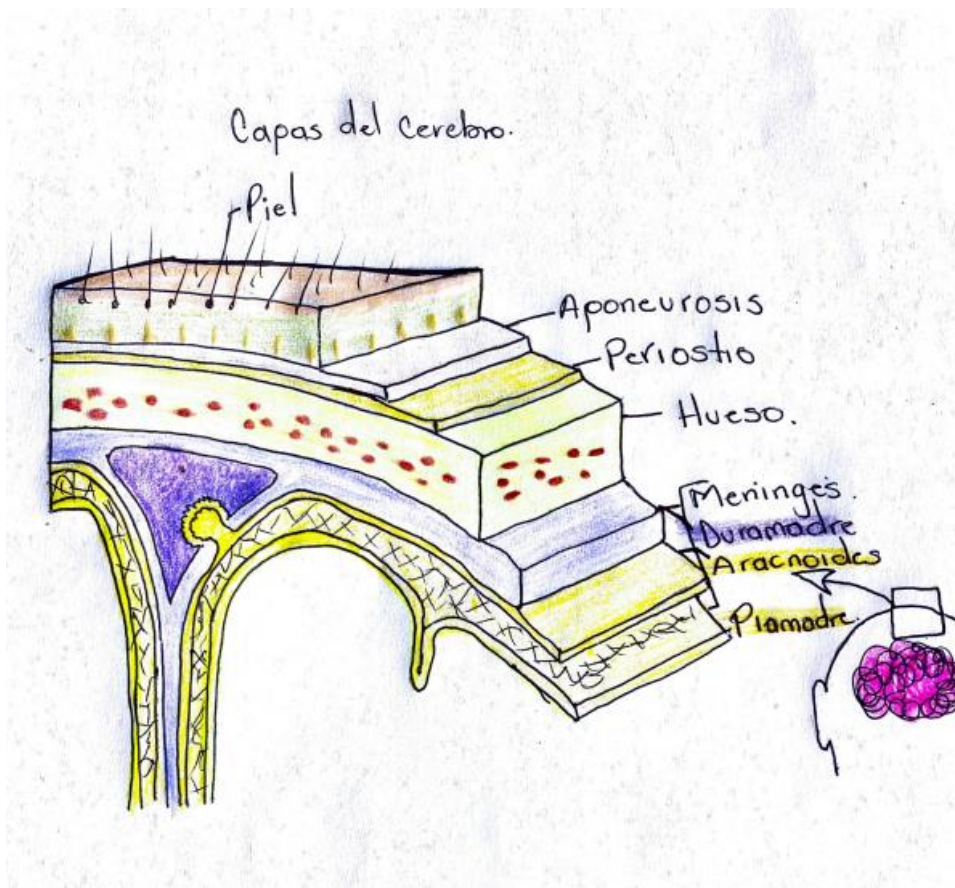 Capas del cerebro.
Piel
Aponeurosis
Periostio
Hueso.
Meninges.
Duramadre
Aracnoides
Piamadre.